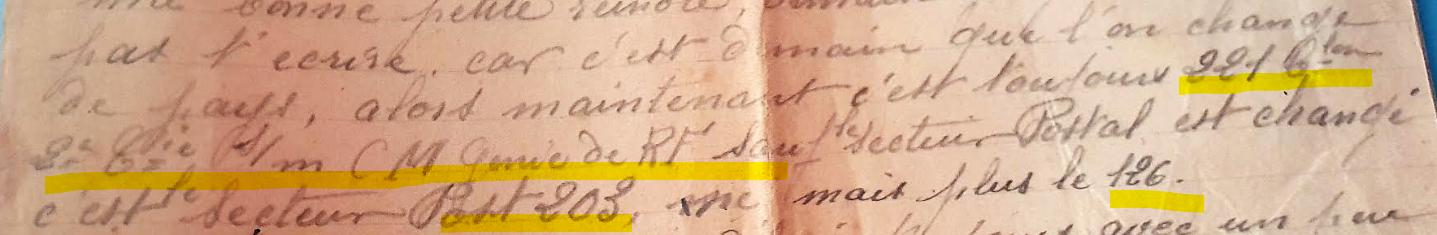 une bonne petite
pas t'ecrire. car c'est demain que l'on change
de pays, alors maintenant c'est toujours 221 Bton
2e Cie S/m CM Genie de RF sauf le secteur Postal est changé
c'est le secteur Post 203, mais plus le 126.
avec un peu